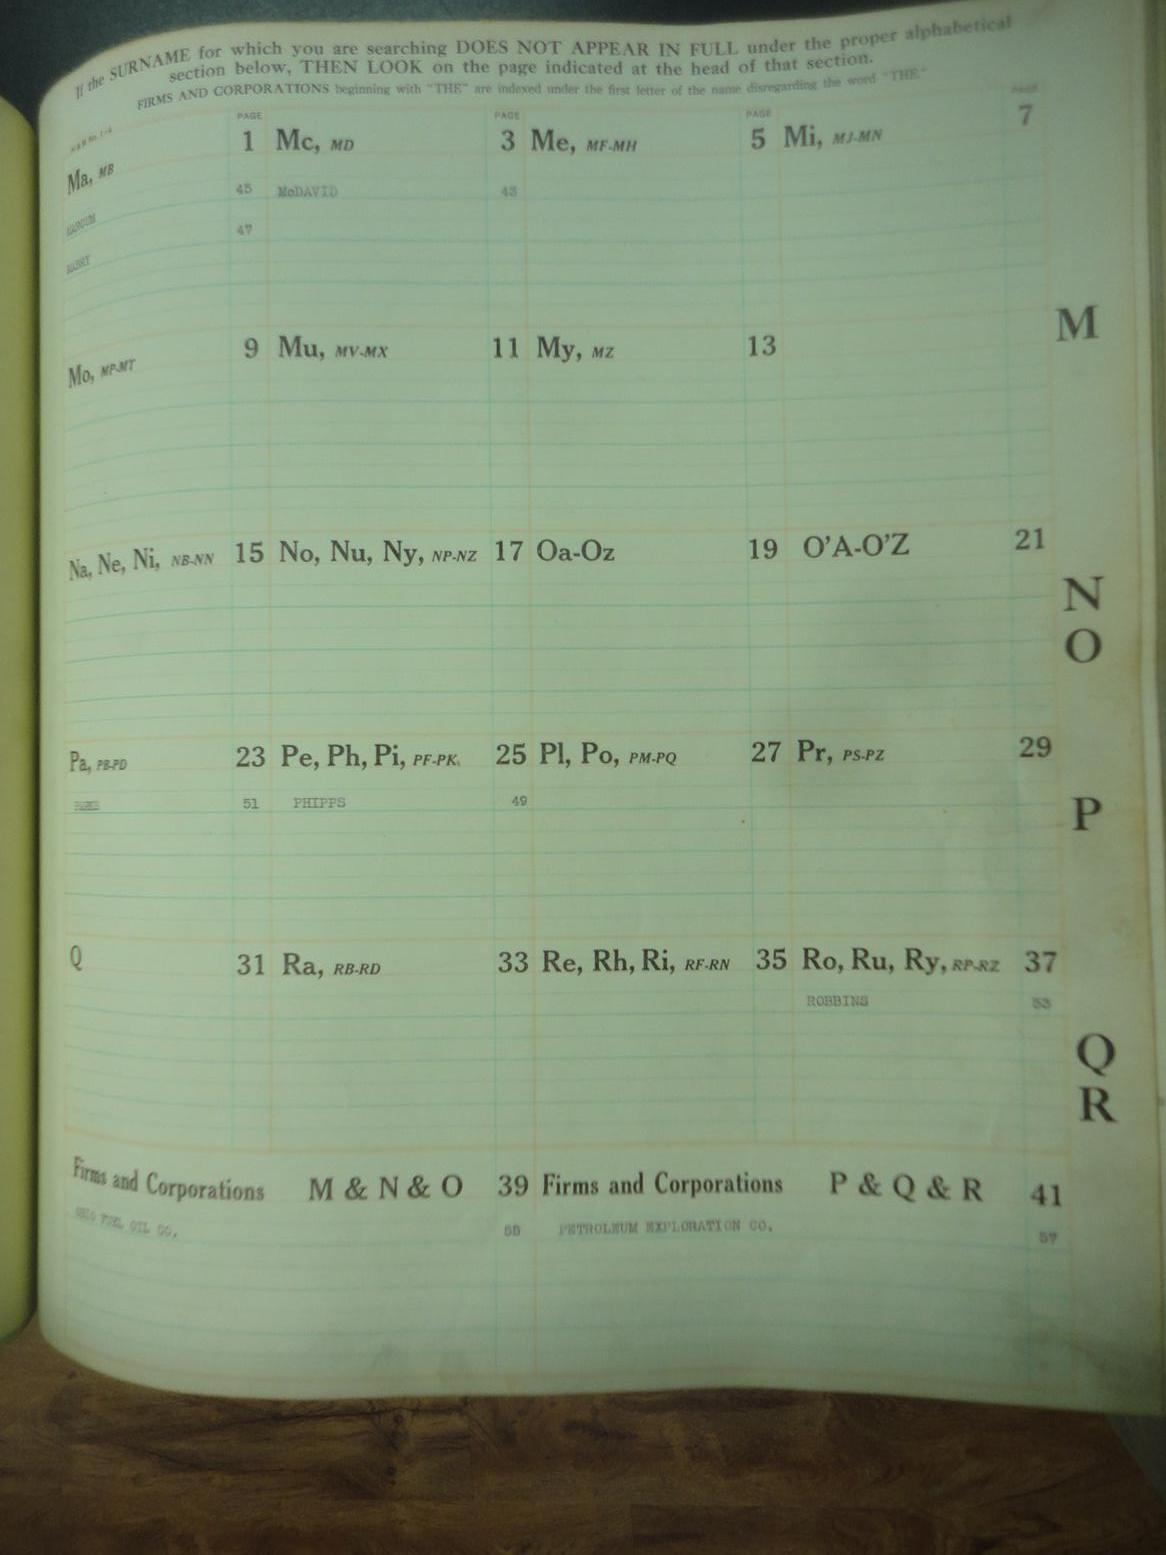 If the SURNAME for which you are searching DOES NOT APPEAR IN FULL under the proper alphabetical
section below, THEN LOOK on the page indicated at the head of that section.
FIRMS AND CORPORATIONS beginning with "THE" are indexed under the first letter of the name disregarding the word "THE"
PAGE PAGE PAGE PAGE
Ma, MB 1 Mc, MD 3 Me, MF-MH 5 Mi, MJ-MN 7
45 McDAVID 43
47
M
Mo, MP-MT 9 Mu, MV-MX 11 My, MZ 13
Na, Ne, Ni, NB-NN 15 No, Nu, Ny, NP-NZ 17 Oa-Oz 19 O'A-O'Z 21
N
O
Pa, PB-PD 23 Pe, Ph, Pi, PF-PK 25 Pl, Po, PM-PQ 27 Pr, PS-PZ 29
PARKS 51 PHIPPS 49
P
Q 31 Ra, RB-RD 33 Re, Rh, Ri, RF-RN 35 Ro, Ru, Ry, RP-RZ 37
ROBBINS 53
Q
R
Firms and Corporations M & N & O 39 Firms and Corporations P & Q & R 41
OHIO FUEL OIL CO. 55 PETROLEUM EXPLORATION CO. 57